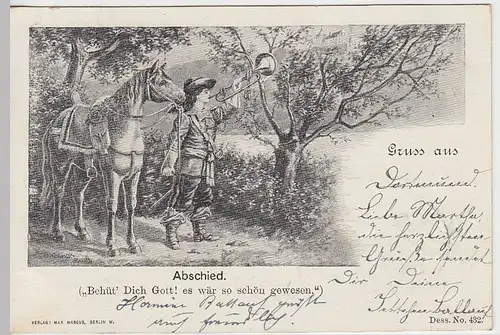 Gruss aus
Dortmund.
Liebe Martha,
die herzlichsten
Grüsse sendet
Dir Deine
Abschied.
(„Behüt’ Dich Gott! es wär so schön gewesen.“)
grüsst
auch freundlich
VERLAG: MAX MARCUS, BERLIN W.
Dess. No. 432.